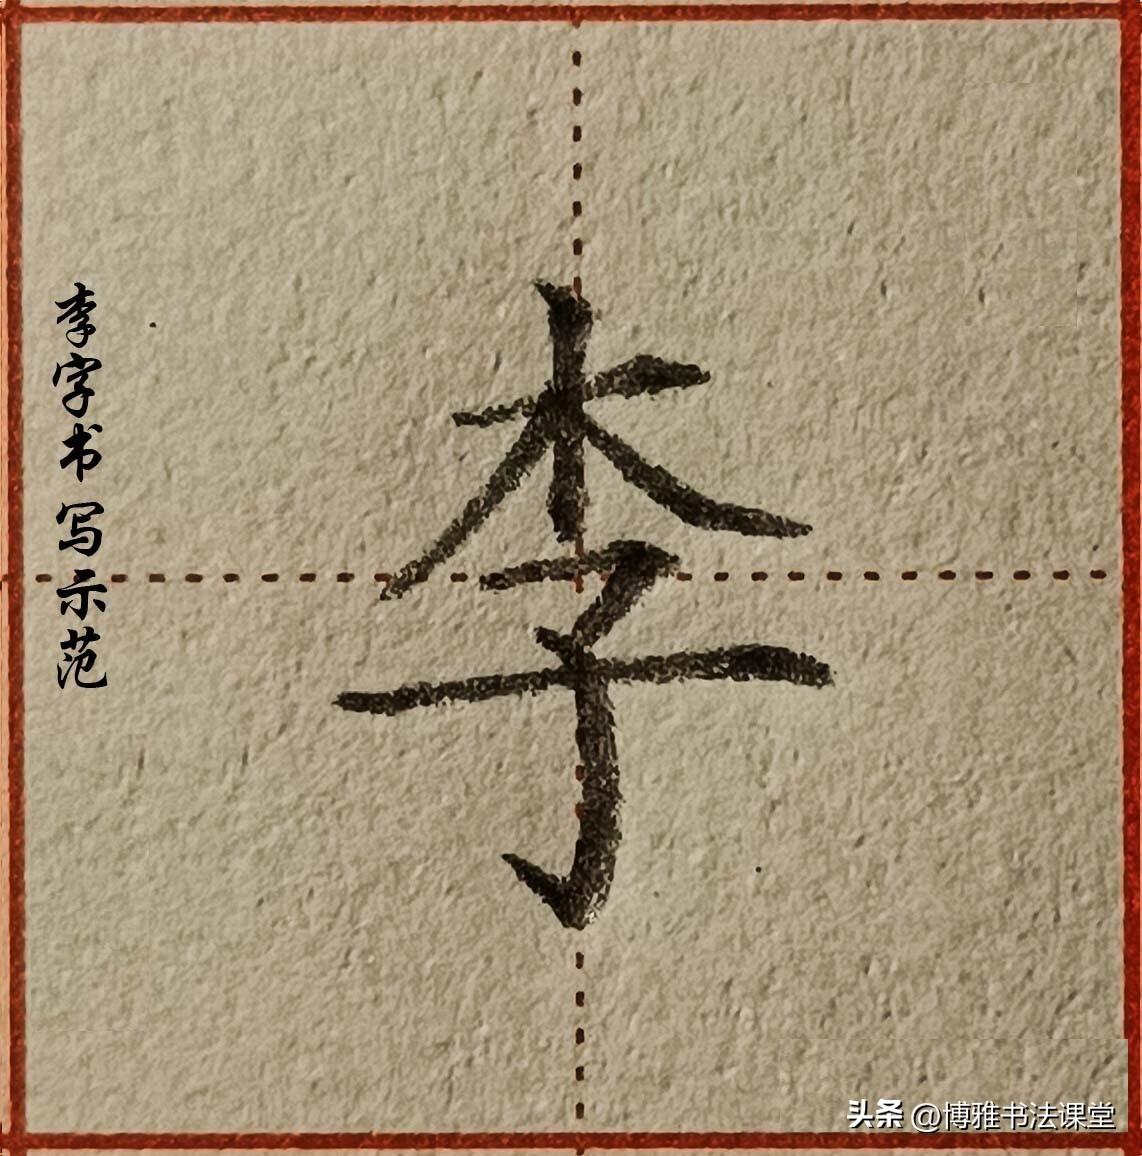 李字书写示范
李
头条 @博雅书法课堂